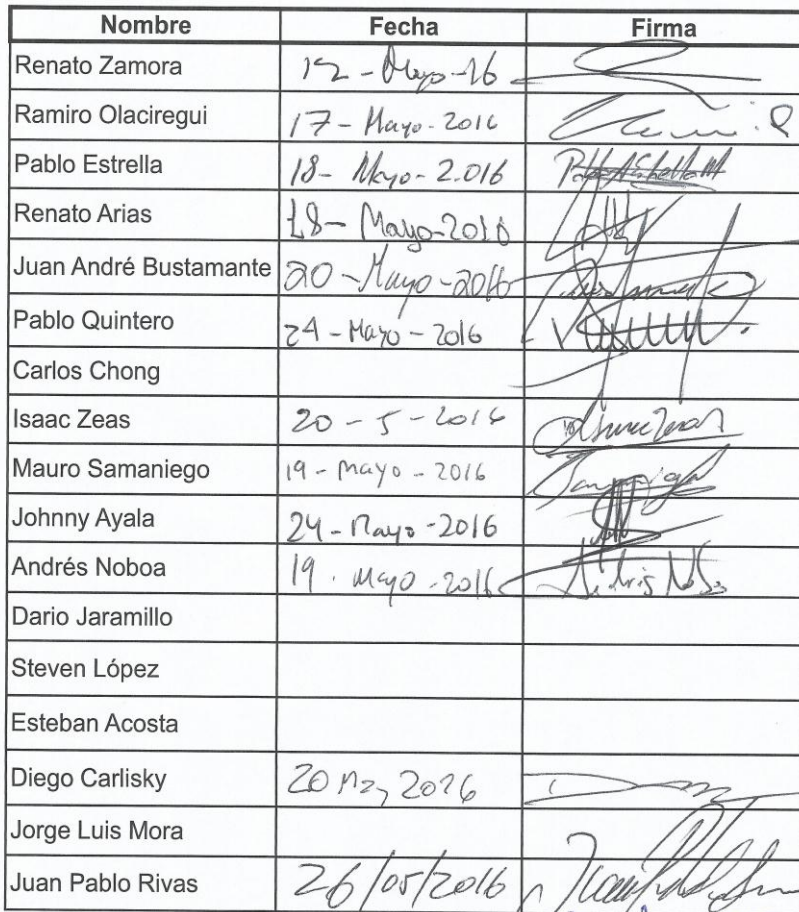 Nombre Fecha Firma
Renato Zamora 12 - Mayo - 16
Ramiro Olaciregui 17 - Mayo - 2016
Pablo Estrella 18 - Mayo - 2.016
Renato Arias 18 - Mayo - 2016
Juan André Bustamante 20 - Mayo - 2016
Pablo Quintero 24 - Mayo - 2016
Carlos Chong
Isaac Zeas 20 - 5 - 2016
Mauro Samaniego 19 - mayo - 2016
Johnny Ayala 24 - Mayo - 2016
Andrés Noboa 19 . mayo - 2016
Dario Jaramillo
Steven López
Esteban Acosta
Diego Carlisky 20 May 2016
Jorge Luis Mora
Juan Pablo Rivas 26/05/2016